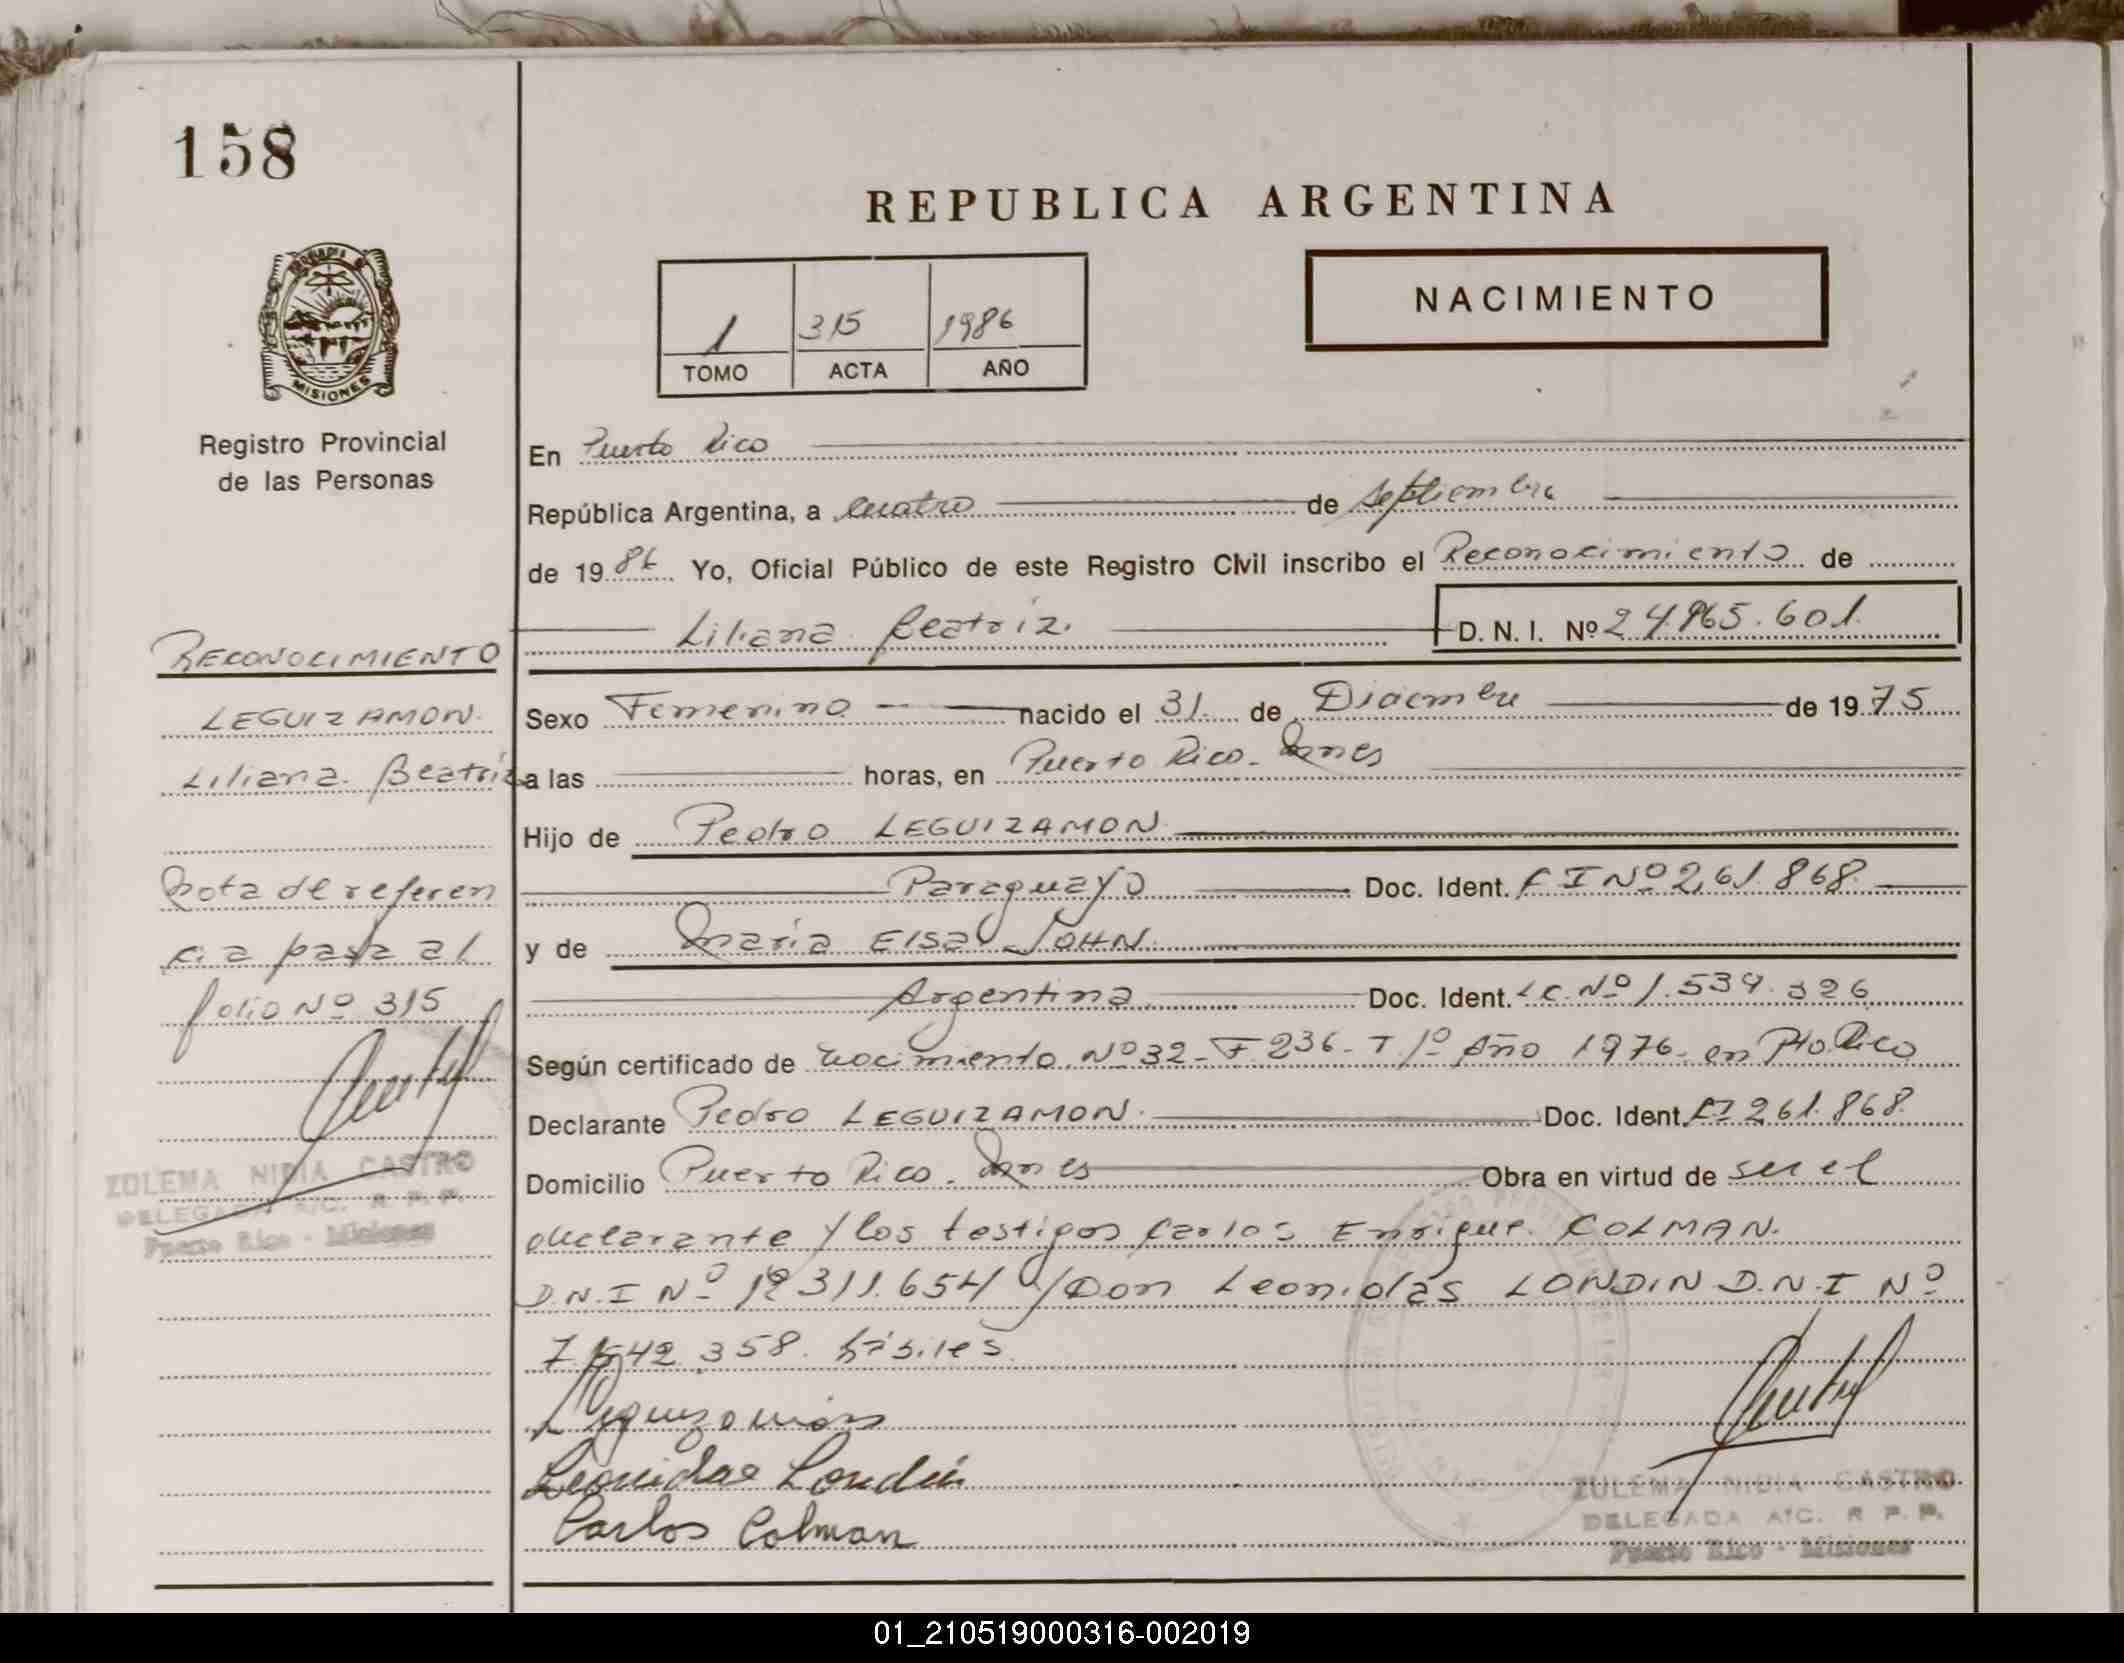 158
REPUBLICA ARGENTINA
NACIMIENTO
1 315 1986
TOMO ACTA AÑO
MISIONES
Registro Provincial
de las Personas
En Puerto Rico
República Argentina, a cuatro de septiembre
de 1986 Yo, Oficial Público de este Registro Civil inscribo el Reconocimiento de
Liliana Beatriz. D. N. I. Nº 24.965.601.
Sexo Femenino nacido el 31 de Diciembre de 1975
a las horas, en Puerto Rico. Mnes
Hijo de Pedro LEGUIZAMON.
Paraguayo Doc. Ident. C I Nº 261.868.
y de María Elsa JOHN.
Argentina. Doc. Ident. LC. Nº 1.539.326
Según certificado de nacimiento. Nº 32 - F. 236 - T 1º Año 1976 - en Pto. Rico
Declarante Pedro LEGUIZAMON. Doc. Ident. CI 261.868.
Domicilio Puerto Rico. Mnes Obra en virtud de ser el
declarante y los testigos Carlos Enrique COLMAN.
D.N.I Nº 12.311.654 y Don Leonidas LONDIN D.N.I Nº
7.542.358. hábiles
Leguizamon
Leonidas Londin
Carlos Colman
ZULEMA NIDIA CASTRO
DELEGADA A/C. R. P. P.
Puerto Rico - Misiones
RECONOCIMIENTO
LEGUIZAMON.
Liliana Beatriz
Nota de referen
cia pasa al
folio Nº 315
ZULEMA NIDIA CASTRO
DELEGADA A/C. R. P. P.
Puerto Rico - Misiones
01_210519000316-002019